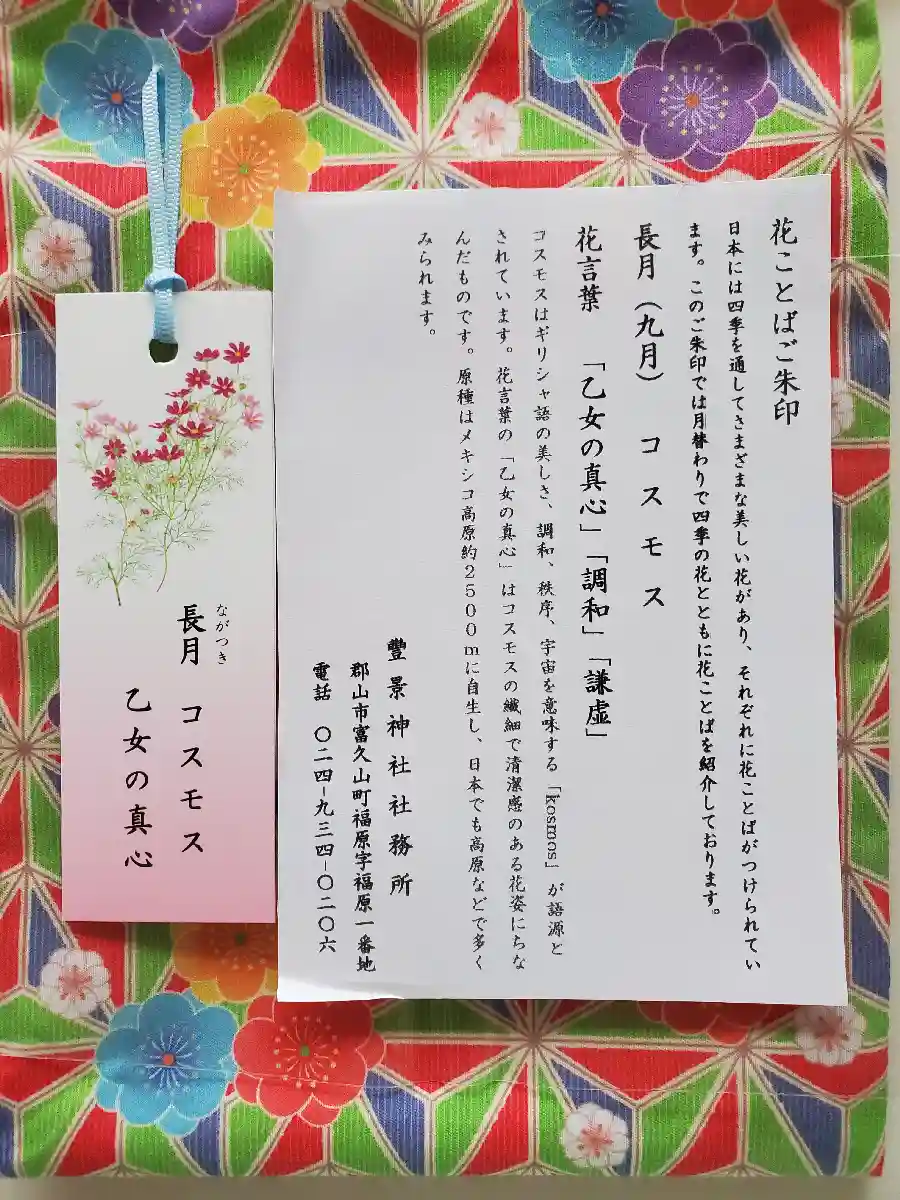 花ことばご朱印
日本には四季を通してさまざまな美しい花があり、それぞれに花ことばがつけられてい
ます。このご朱印では月替わりで四季の花とともに花ことばを紹介しております。
長月（九月） コスモス
花言葉 「乙女の真心」「調和」「謙虚」
コスモスはギリシャ語の美しさ、調和、秩序、宇宙を意味する「kosmos」が語源と
されています。花言葉の「乙女の真心」はコスモスの繊細で清潔感のある花姿にちな
んだものです。原種はメキシコ高原約2500mに自生し、日本でも高原などで多く
みられます。
豐景神社社務所
郡山市富久山町福原字福原一番地
電話 〇二四-九三四-〇二〇六
ながつき
長月 コスモス
乙女の真心